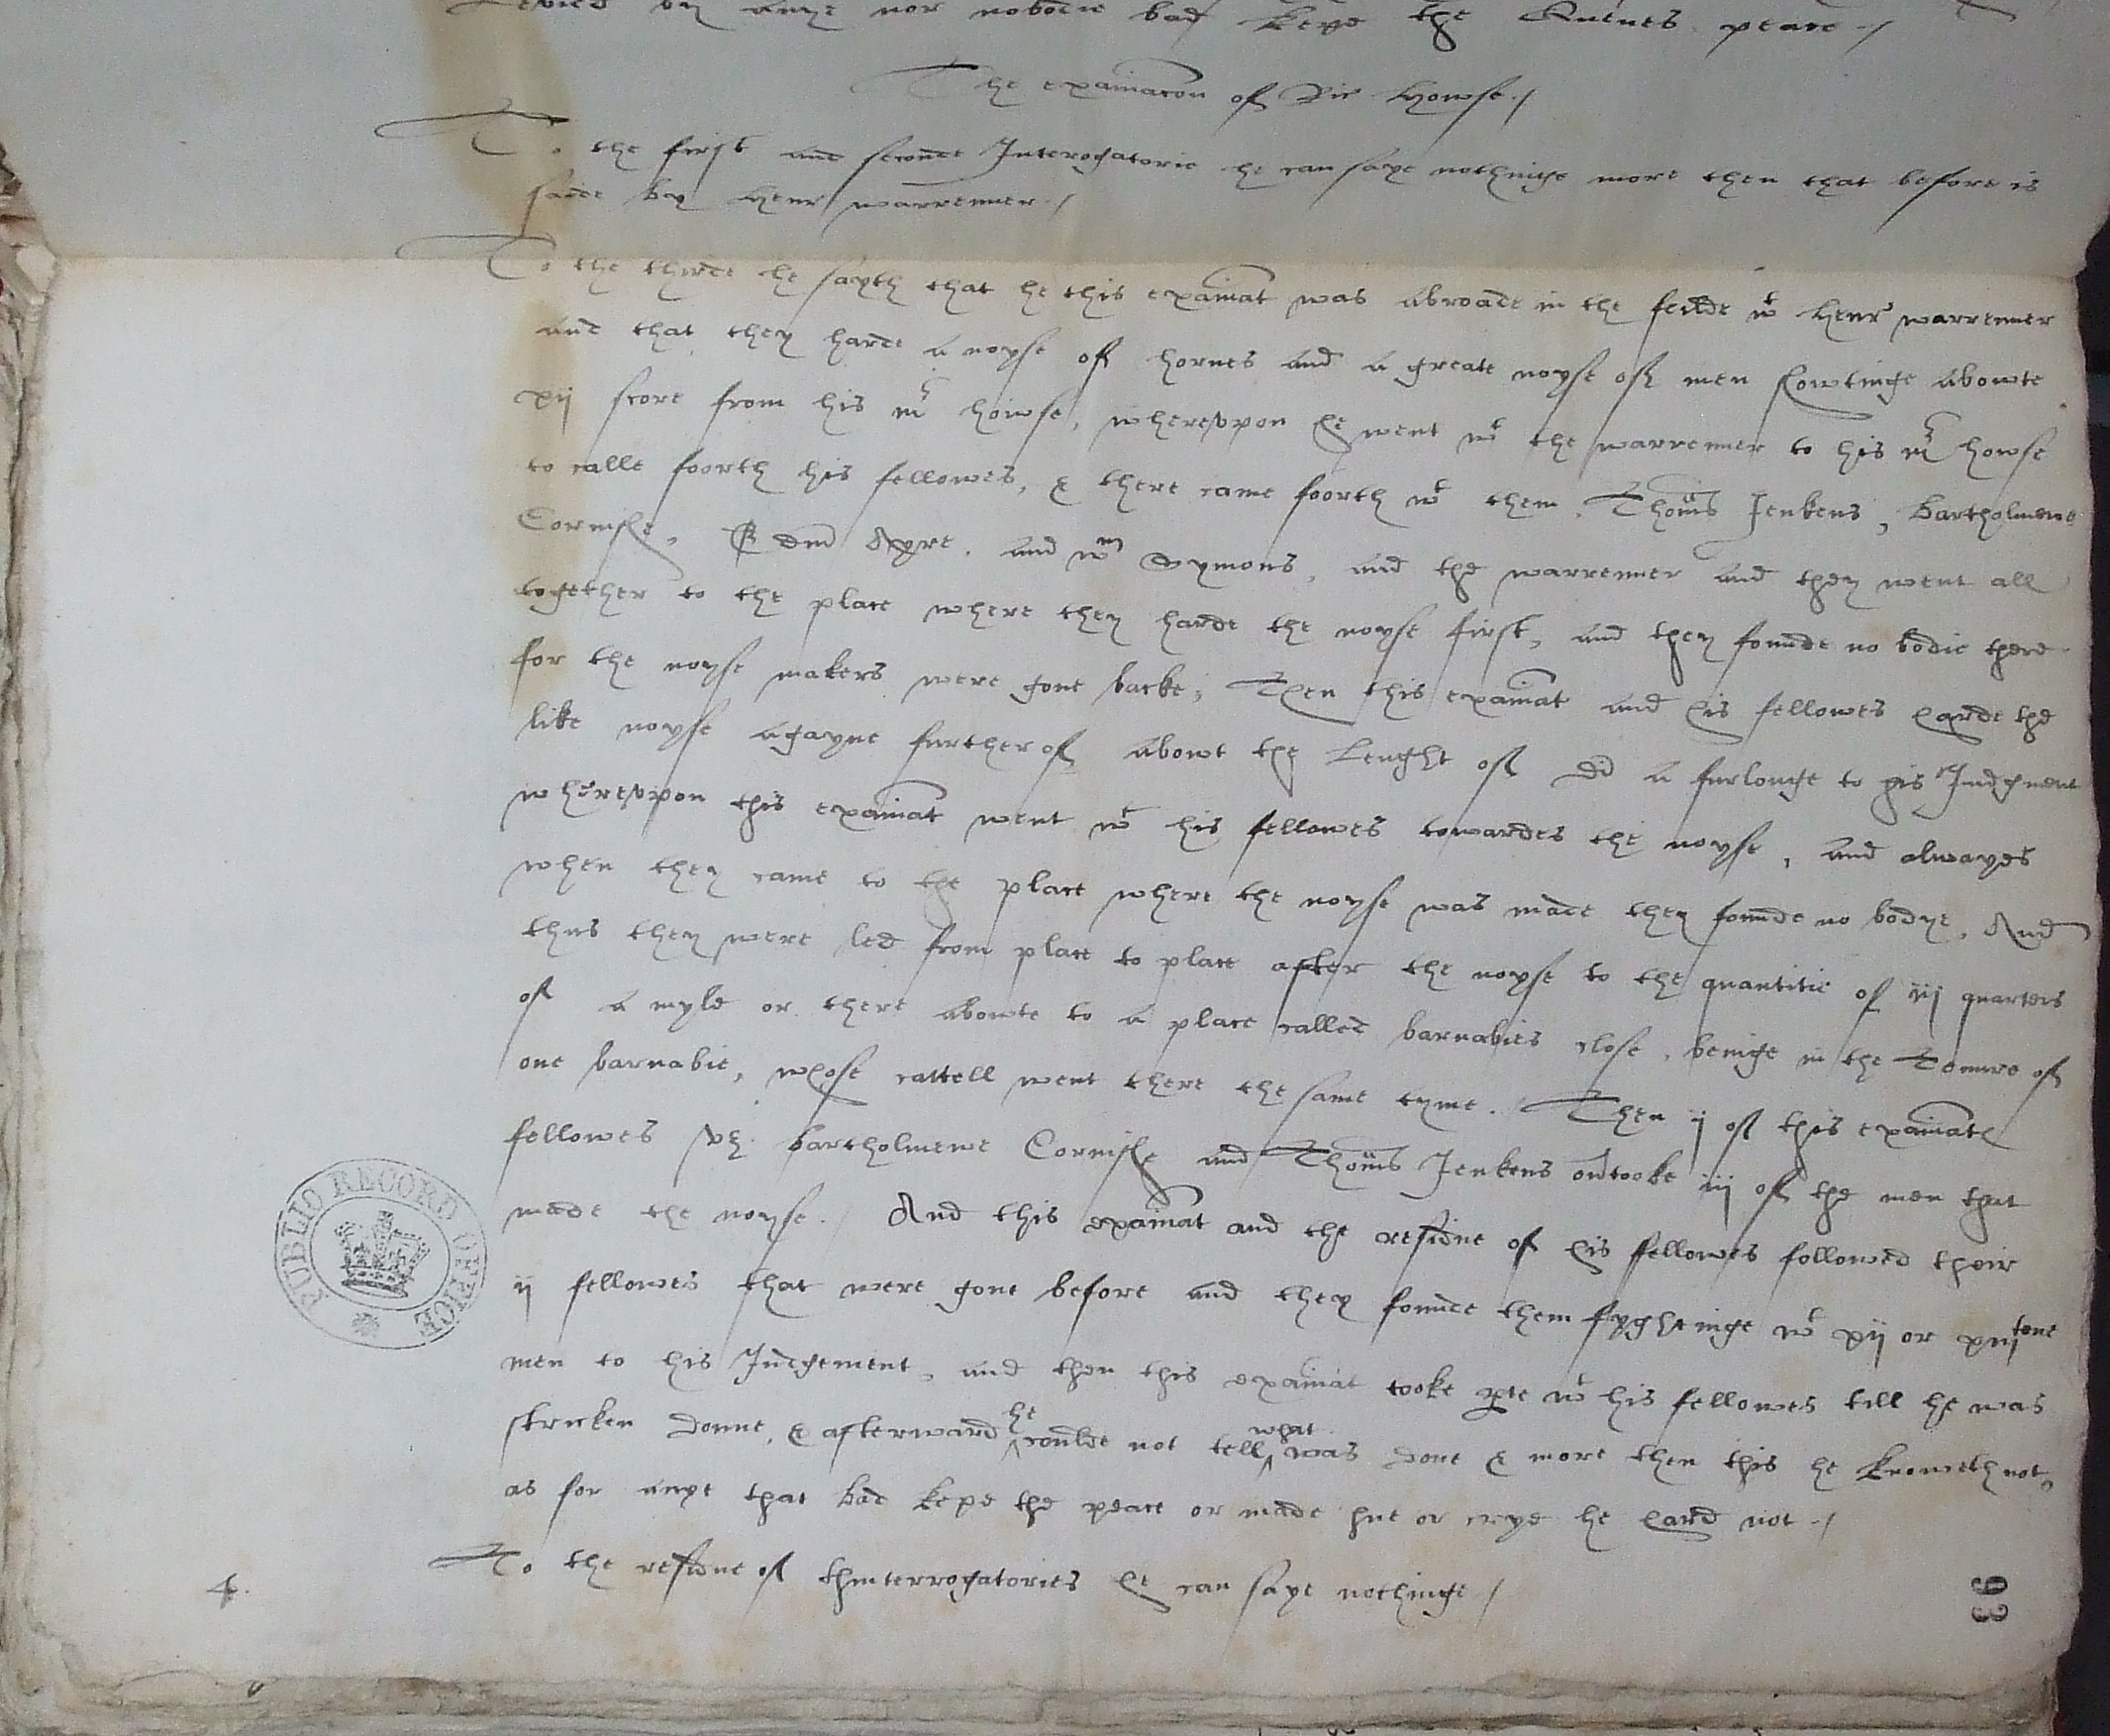 Levied by anye nor nobodie bad kepe the Quenes peace ./
The examinacon of Ric Howse ./
To the first and seconde Interogatorie he can saye nothinge more then that before is
saide by Henr warrenner ./
To the thirde he sayth that he this examinat was abroade in the feilde wt Henr warrenner
and that they harde a noyse of hornes and a greate noyse of men showtinge abowte
xij score from his mr howse, wherevpon he went wt the warrenner to his mr howse
to calle foorth his fellowes, & there came foorth wt them Thoms Jenkens, Bartholmewe
Cornishe, Edmd Ayre, and wm Symons, and the warrenner and they went all
together to the place where they harde the noyse first, and they founde no bodie there
for the noyse makers were gone backe, Then this examinat and his fellowes harde the
like noyse agayne further of abowt the Lenght of di a furlonge to his Judgment
wherevpon this examinat went wt his fellowes towardes the noyse, and alwayes
when they came to the place where the noyse was made they founde no bodye, And
thus they were led from place to place after the noyse to the quantitie of iij quarters
of a myle or there abowte to a place called barnabies close, beinge in the Tenure of
one barnabie, whose cattell went there the same tyme. / Then ij of this examinate
fellowes vz. Bartholmewe Cornishe and Thoms Jenkens ovtooke iij of the men that
made the noyse. / And this examinat and the residue of his fellowes followed their
ij fellowes that were gone before and they founde them fyghtinge wt xij or xiij tene
men to his Judgement, and then this examinat tooke pte wt his fellowes till he was
stricken downe, & afterward he coulde not tell what was done & more then this he knoweth not,
as for anye that bad kepe the peace or made hue or crye he hard not ./
To the residue of thinterrogatories he can saye nothinge ./
4.
PUBLIC RECORD OFFICE